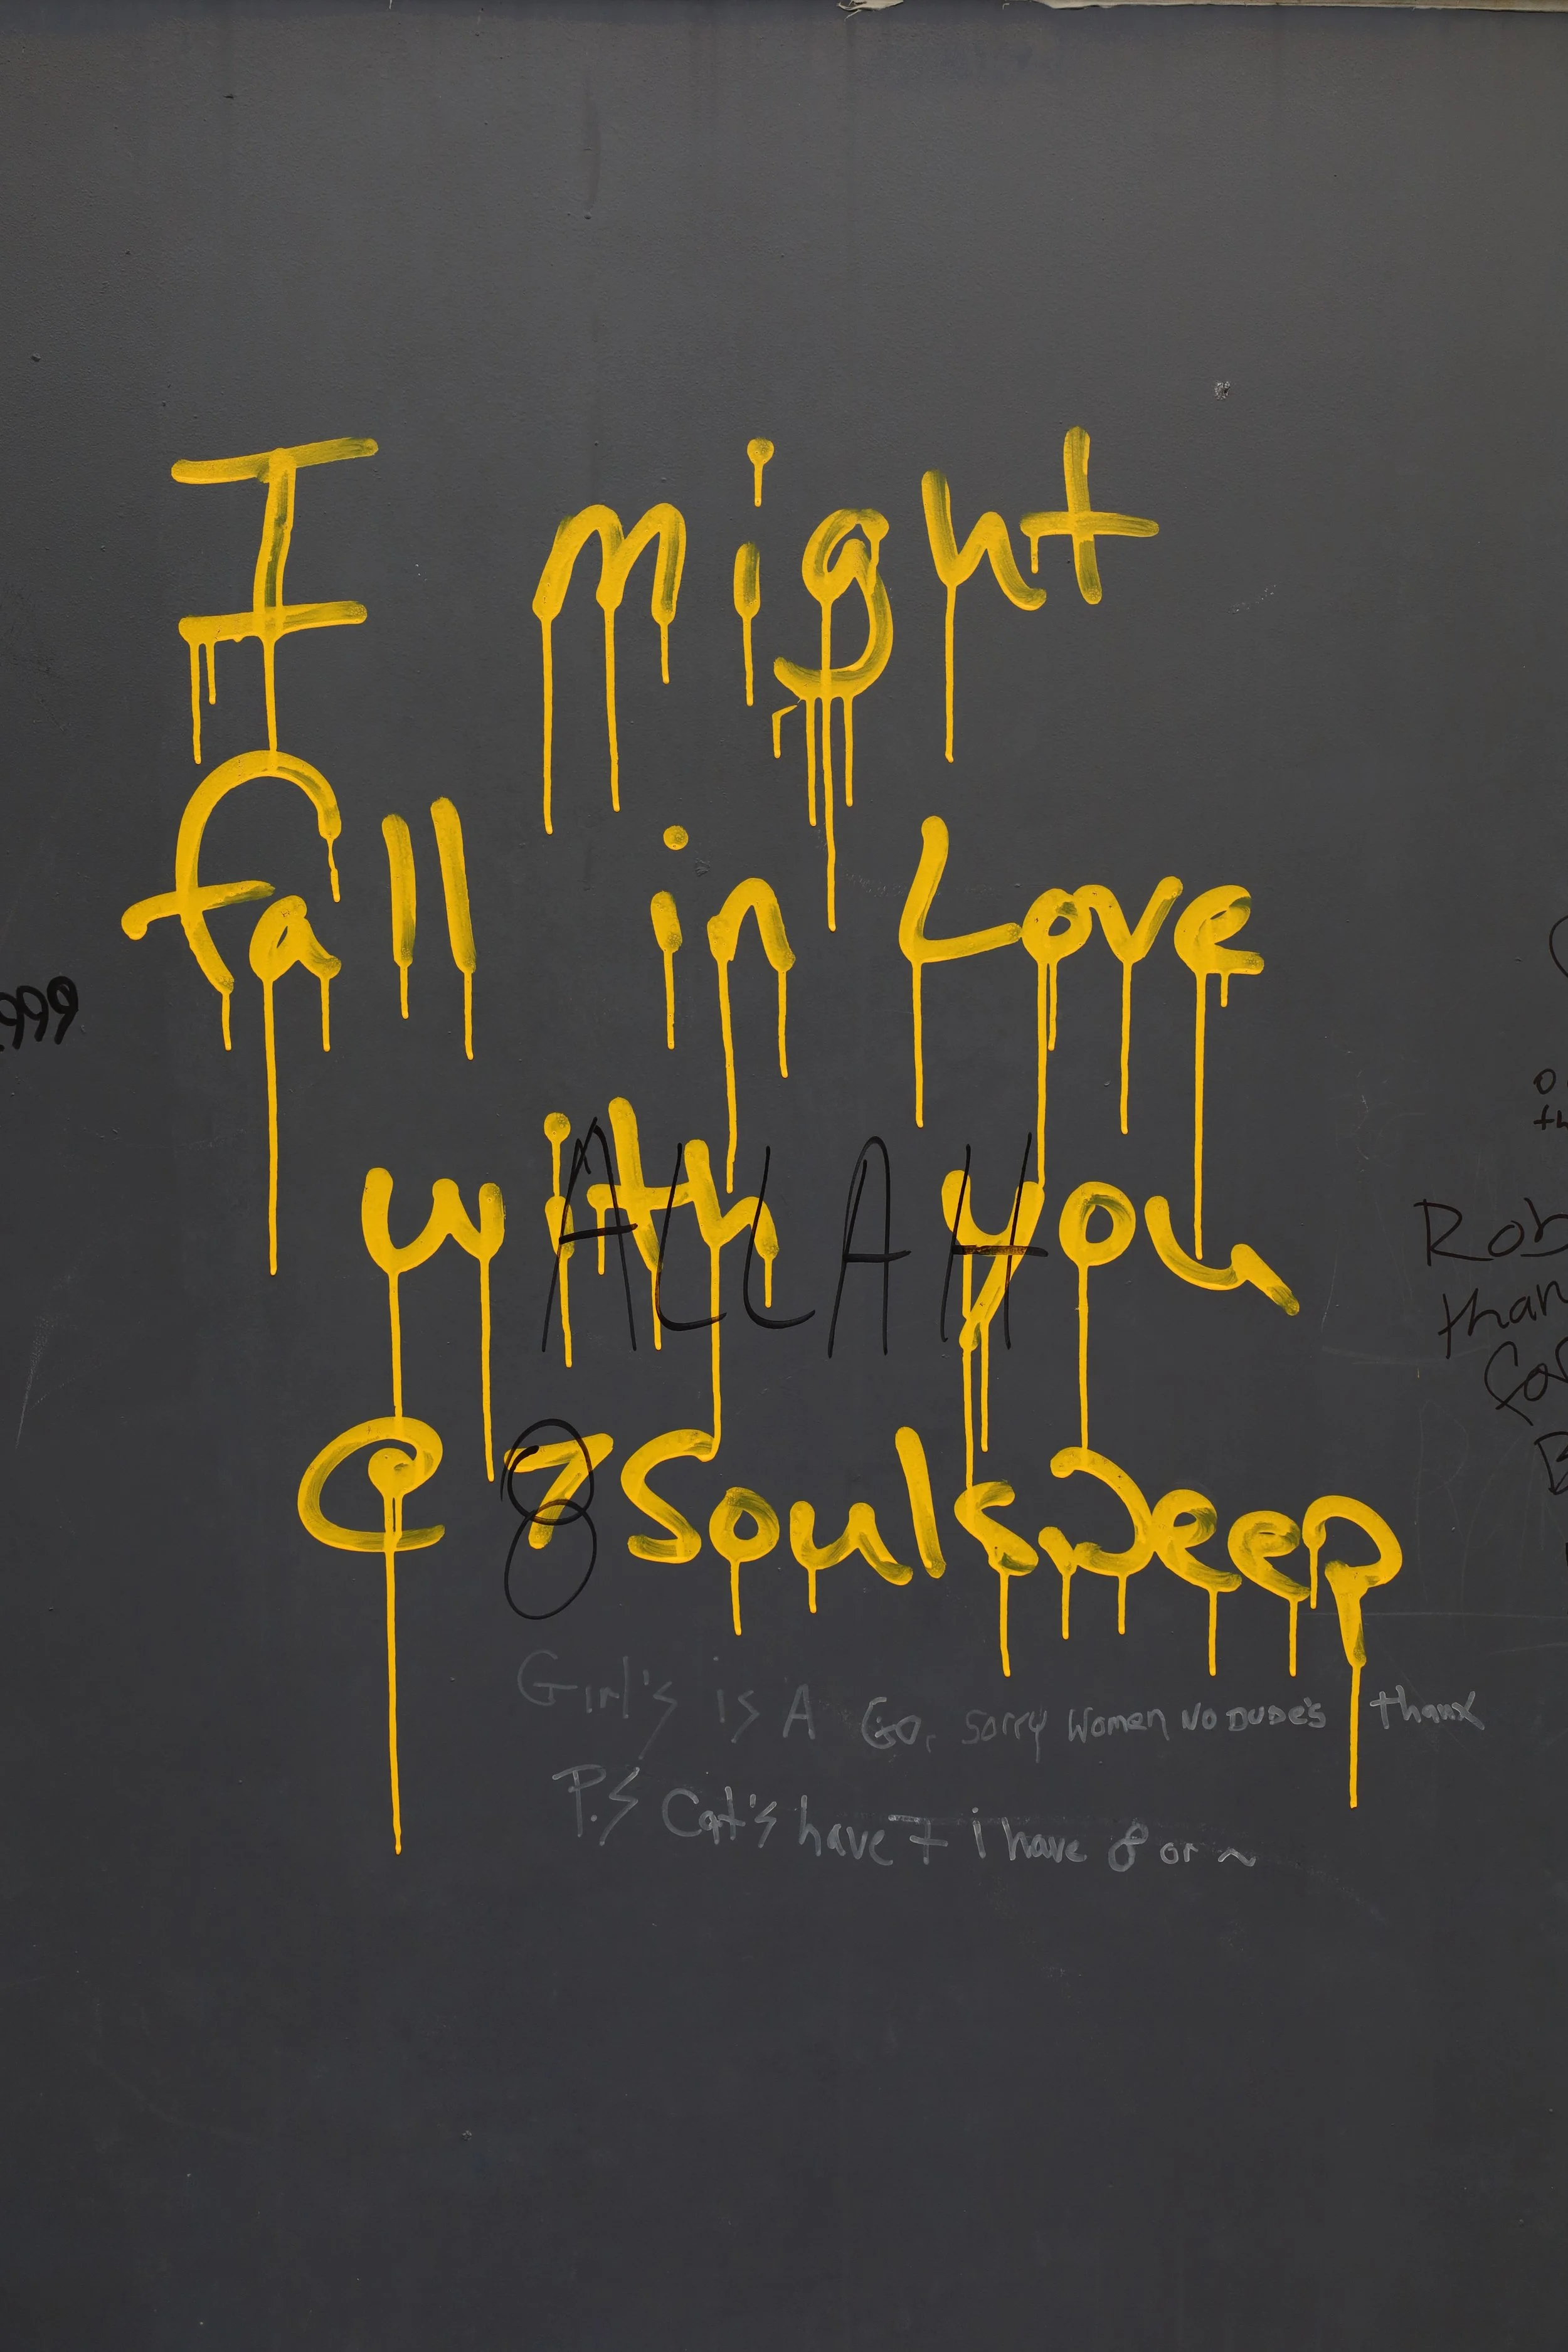 I might
fall in Love
with you
ALLAH
@7SoulsDeep
8
Girl's is A Go, sorry Women No DUDE's thanx
P.S Cat's have 7 i have 8 or ~
999
Rob
than
for